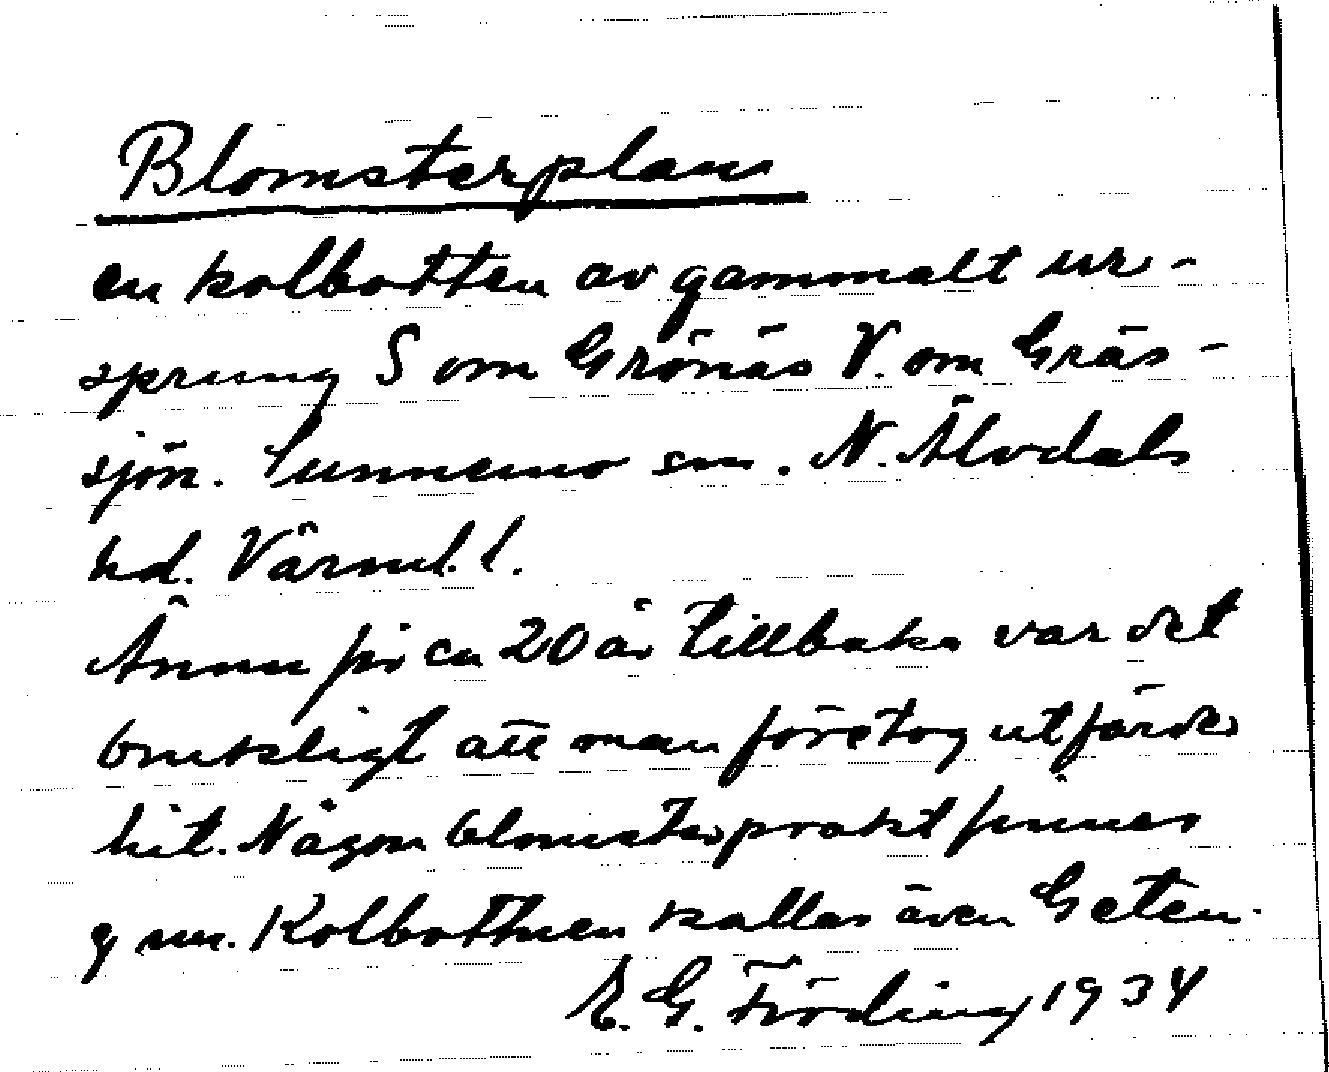 Blomsterplan
en kolbotten av gammalt ur-
sprung S om Grönäs V. om Gräs-
sjön. Sunnemo sn. N. Älvdals
hd. Värml. l.
Ännu för ca 20 år tillbaka var det
brukligt att man företog utfärder
hit. Någon blomsterprakt finnes
ej nu. Kolbottnen kallas även Geten.
E. G. Fröding 1934